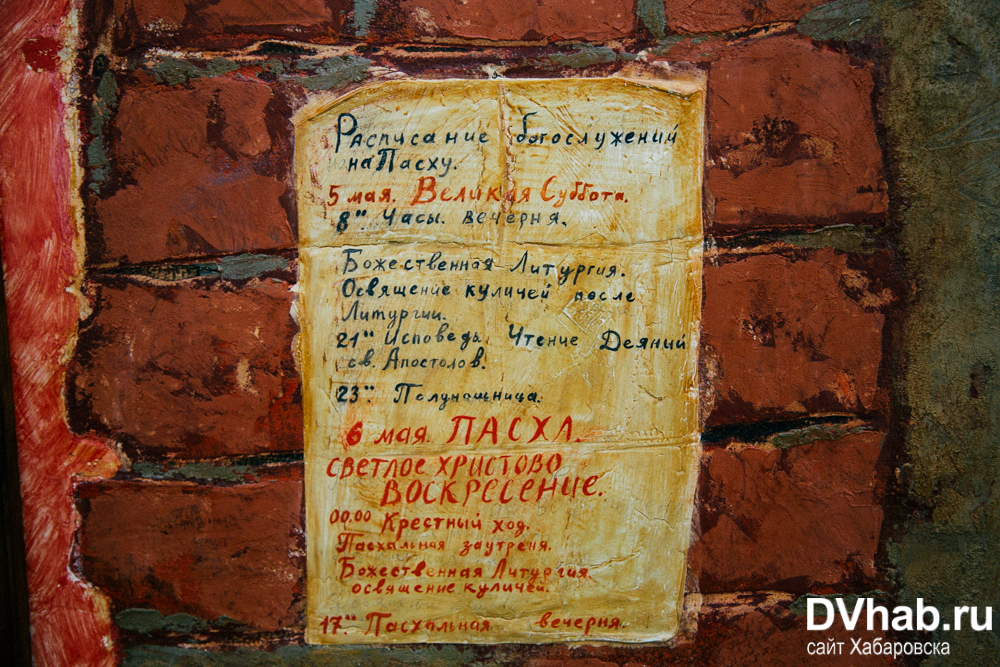 Расписание богослужений
на Пасху.
5 мая. Великая Суббота.
8°° Часы. вечерня.
Божественная Литургия.
Освящение куличей после
Литургии.
21°° Исповедь. Чтение Деяний
св. Апостолов.
23°° Полунощница.
6 мая. ПАСХА.
СВЕТЛОЕ ХРИСТОВО
ВОСКРЕСЕНИЕ.
00.00 Крестный ход.
Пасхальная заутреня.
Божественная Литургия.
освящение куличей.
17°° Пасхальная вечерня.
DVhab.ru
сайт Хабаровска